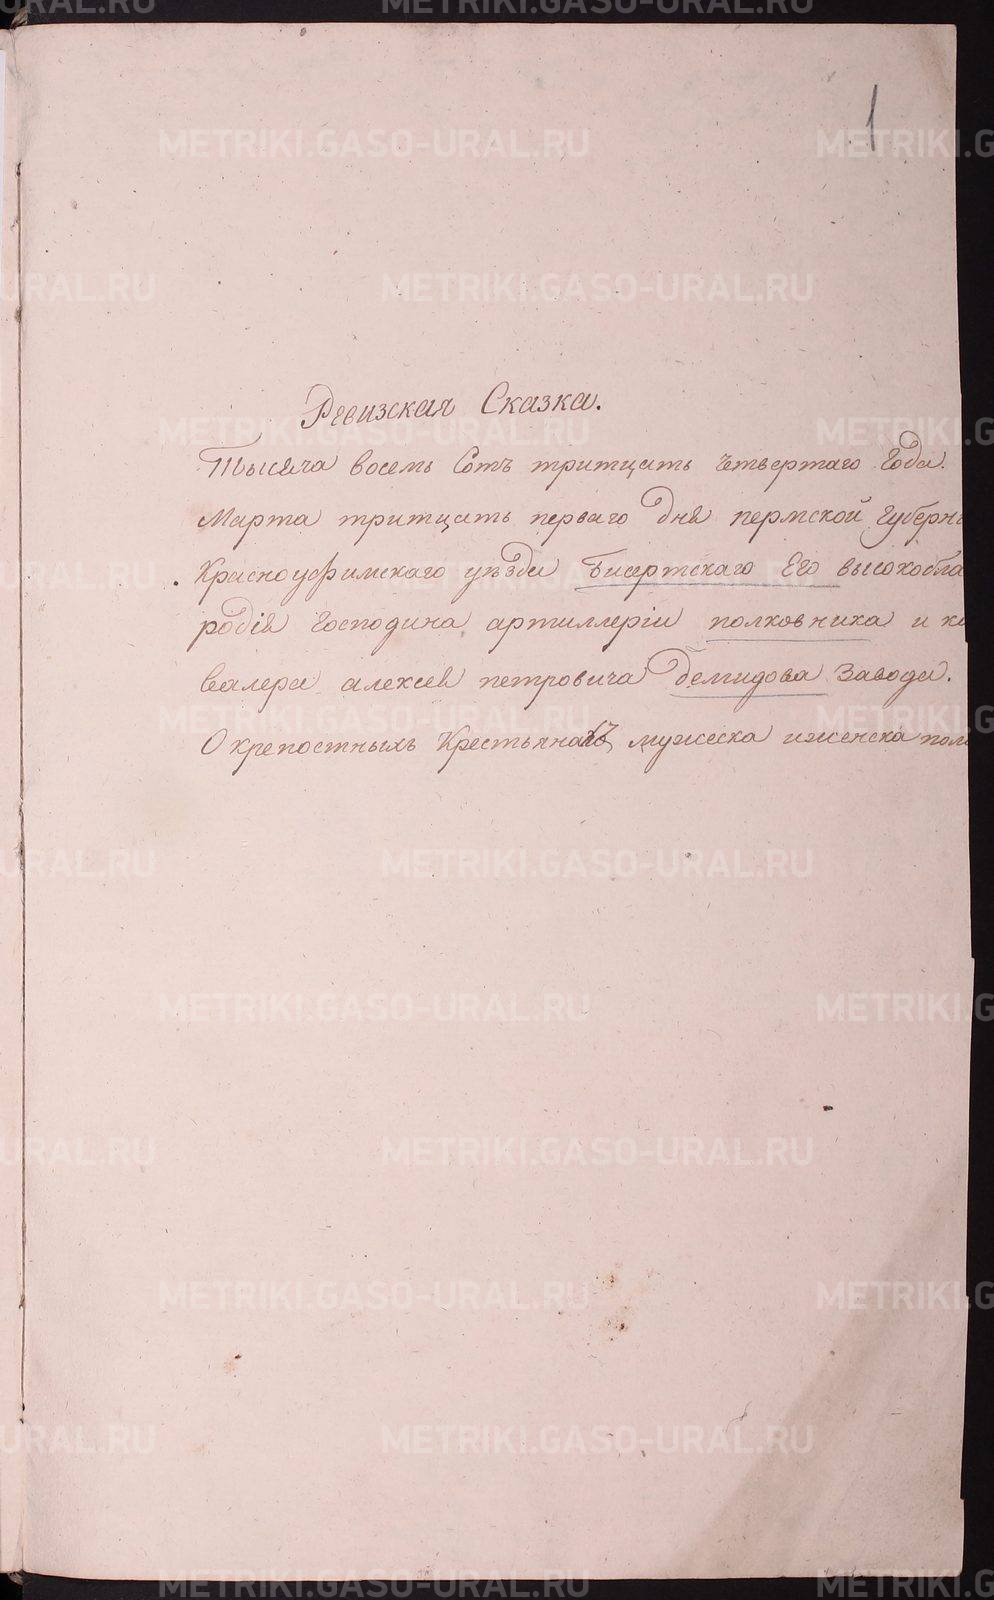 1
Ревизская Сказка.
Тысяча восемь Сотъ тритцать четвертаго Года.
Марта тритцать перваго дня пермской губерн
Красноуфимскаго уезда Бисертскаго Его высокобла
родiя Господина артиллерiи полковника и ка
валера алексея петровича Демидова Завода.
О крепостныхъ Крестьянахъ мужеска и женска пола
METRIKI.GASO-URAL.RU